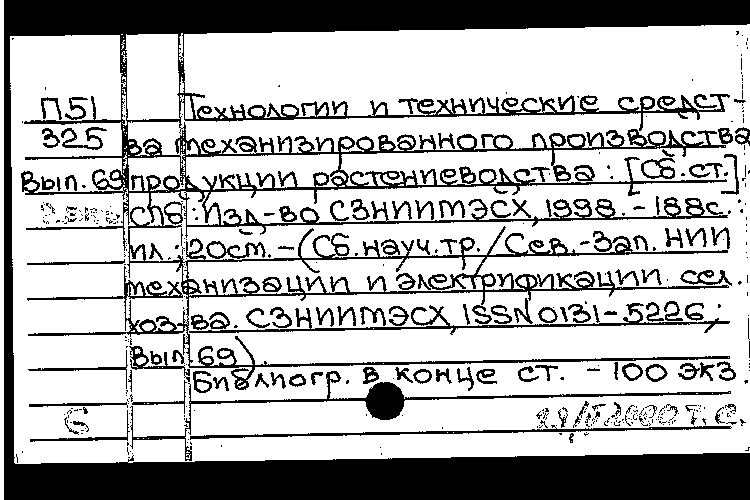 П51 Технологии и технические средст-
325 ва механизированного производства
Вып.69 продукции растениеводства : [Сб.ст.].
СПб : Изд-во СЗНИИМЭСХ, 1998. - 188с. :
ил.; 20см. - (Сб.науч.тр. / Сев.-Зап. НИИ
механизации и электрификации сел.
хоз-ва. СЗНИИМЭСХ, ISSN 0131-5226;
Вып.69).
Библиогр. в конце ст. - 100 экз.
Б